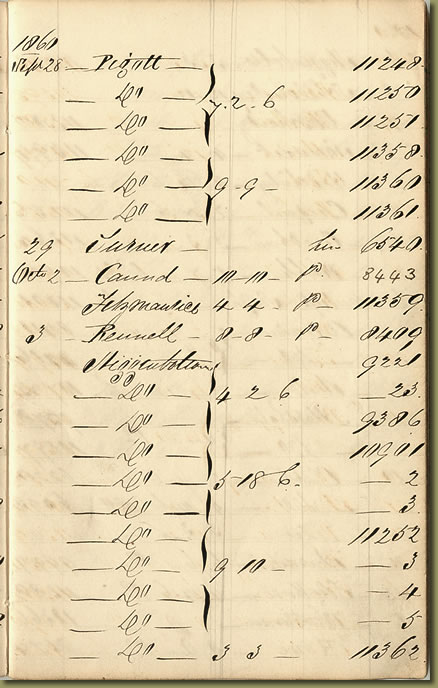 1860
Sept 28 — Pigott — 11248
— Do — 7. 2 - 6 11250
— Do — 11251
— Do — 11358
— Do — 9 - 9 - 11360
— Do — 11361
29 Turner — 6540
Octo 2 — Caund — 10 - 10 - pd. 8443
Fitzmaurice 4 4 - pd - 11359
3 — Rennell — 8 - 8 - pd - 8409
9221
— Do — 4 2 6 — 23
— Do — 9386
— Do — 10901
— Do — 5 - 18 6 - — 2
— Do — — 3
— Do — 11252
— Do — 9 10 — — 3
— Do — — 4
— Do — — 5
— Do — 3 3 — 11362